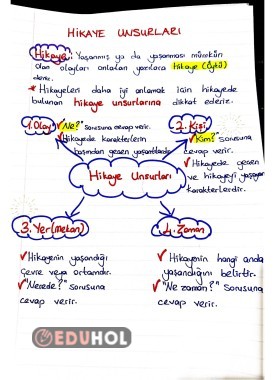 HİKAYE UNSURLARI
Hikaye: Yaşanmış ya da yaşanması mümkün
olan olayları anlatan yazılara Hikaye (Öykü)
denir.
* Hikayeleri daha iyi anlamak için hikayede
bulunan hikaye unsurlarına dikkat ederiz.
1. Olay
"Ne?" sorusuna cevap verir.
✓Hikayede karakterlerin
başından geçen yaşantılardır.
2. Kişi
"Kim?" sorusuna
cevap verir.
✓Hikayede geçen
ve hikayeyi yaşayan
karakterlerdir.
Hikaye Unsurları
3. Yer (Mekan)
✓Hikayenin yaşandığı
çevre veya ortamdır.
✓"Nerede?" sorusuna
cevap verir.
4. Zaman
✓Hikayenin hangi anda
yaşandığını belirtir.
✓"Ne zaman?" sorusuna
cevap verir.
EDUHOL